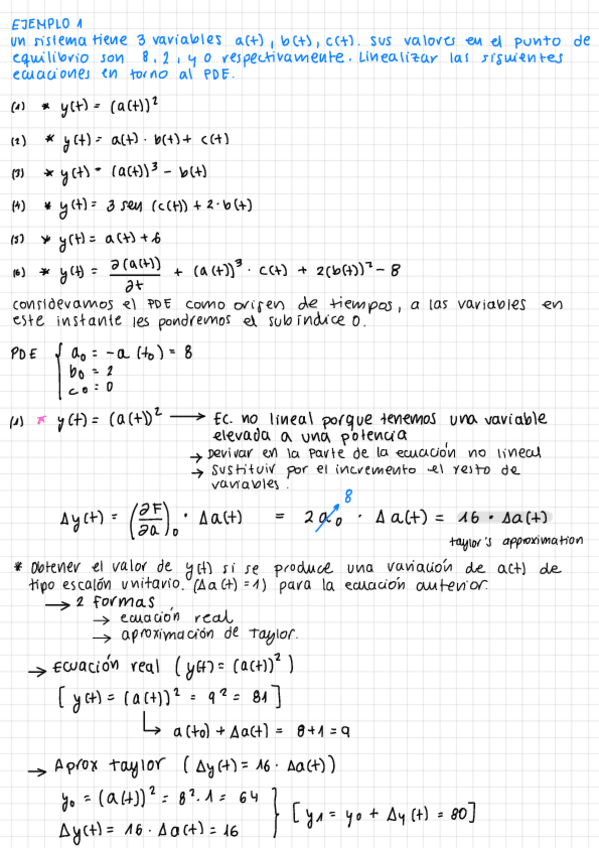 EJEMPLO 1
un sistema tiene 3 variables a(t), b(t), c(t). sus valores en el punto de
equilibrio son 8, 2, y 0 respectivamente. Linealizar las siguientes
ecuaciones en torno al PDE.
(1) * y(t) = (a(t))²
(2) * y(t) = a(t) · b(t) + c(t)
(3) * y(t) = (a(t))³ - b(t)
(4) * y(t) = 3 sen (c(t)) + 2·b(t)
(5) * y(t) = a(t) + 6
(6) * y(t) = ∂(a(t))/∂t + (a(t))³ · c(t) + 2(b(t))² - 8
consideramos el PDE como origen de tiempos, a las variables en
este instante les pondremos el subíndice 0.
PDE { a₀ = -a (t₀) = 8
b₀ = 2
c₀ = 0
(1) * y(t) = (a(t))² → Ec. no lineal porque tenemos una variable
elevada a una potencia
→ Derivar en la parte de la ecuación no lineal
→ sustituir por el incremento el resto de
variables.
8
Δy(t) = (∂F/∂a)₀ · Δa(t) = 2a₀ · Δa(t) = 16 · Δa(t)
taylor's approximation
* Obtener el valor de y(t) si se produce una variación de a(t) de
tipo escalón unitario. (Δa(t) = 1) para la ecuación anterior.
→ 2 formas
→ ecuación real
→ aproximación de Taylor.
→ Ecuación real (y(t) = (a(t))²)
[y(t) = (a(t))² = 9² = 81]
↳ a(t₀) + Δa(t) = 8+1 = 9
→ Aprox taylor (Δy(t) = 16 · Δa(t))
y₀ = (a(t))² = 8²·1 = 64
Δy(t) = 16 · Δa(t) = 16 } [y₁ = y₀ + Δy(t) = 80]